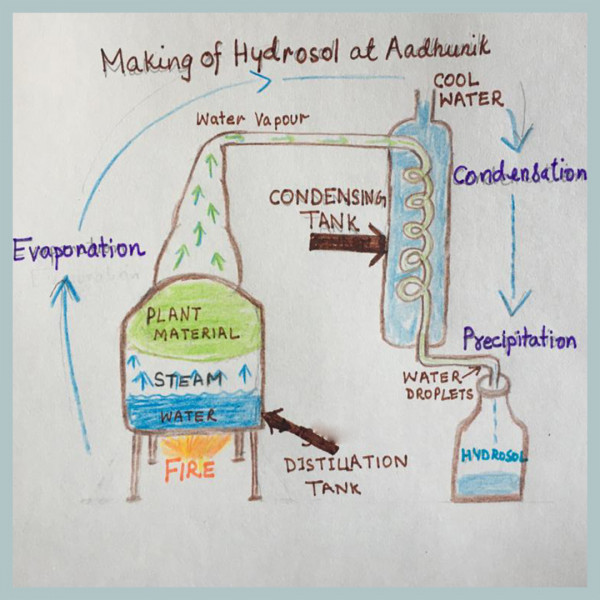 Making of Hydrosol at Aadhunik
COOL
WATER
Water Vapour
Condensation
CONDENSING
TANK
Evaporation
PLANT
MATERIAL
Precipitation
STEAM
WATER
WATER
DROPLETS
HYDROSOL
FIRE
DISTILLATION
TANK